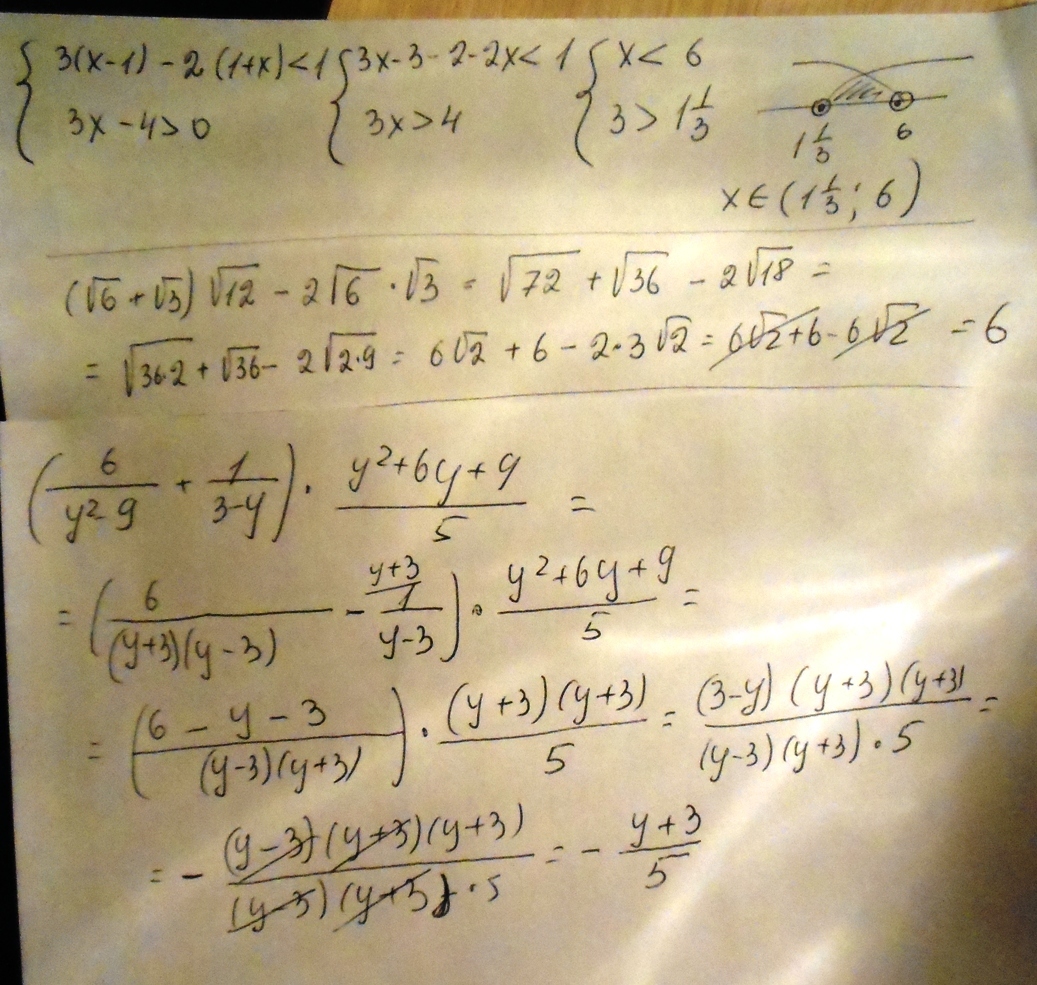 { 3(x-1) - 2(1+x) < 1 { 3x-3-2-2x < 1 { x < 6
3x - 4 > 0 3x > 4 3 > 1 1/3
1 1/3 6
x ∈ (1 1/3; 6)
(√6 + √3)√12 - 2√6 · √3 = √72 + √36 - 2√18 =
= √36·2 + √36 - 2√2·9 = 6√2 + 6 - 2·3√2 = 6√2 + 6 - 6√2 = 6
(6/(y²-9) + 1/(3-y)) · (y²+6y+9)/5 =
= (6/((y+3)(y-3)) - 1/(y-3) y+3) · (y²+6y+9)/5 =
= ((6-y-3)/((y-3)(y+3))) · ((y+3)(y+3))/5 = ((3-y)(y+3)(y+3))/((y-3)(y+3)·5) =
= - ((y-3)(y+3)(y+3))/((y-3)(y+3)·5) = - (y+3)/5